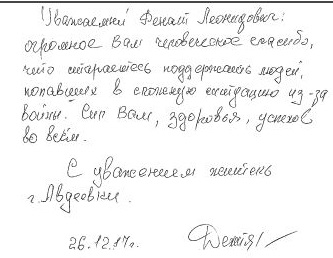 Уважаемый Ренат Леонидович!
огромное Вам человеческое спасибо,
что стараетесь поддержать людей,
попавших в сложную ситуацию из-за
войны. Сил Вам, здоровья, успехов
во всём.
С уважением житель
г. Авдеевки.
26.12.17г.